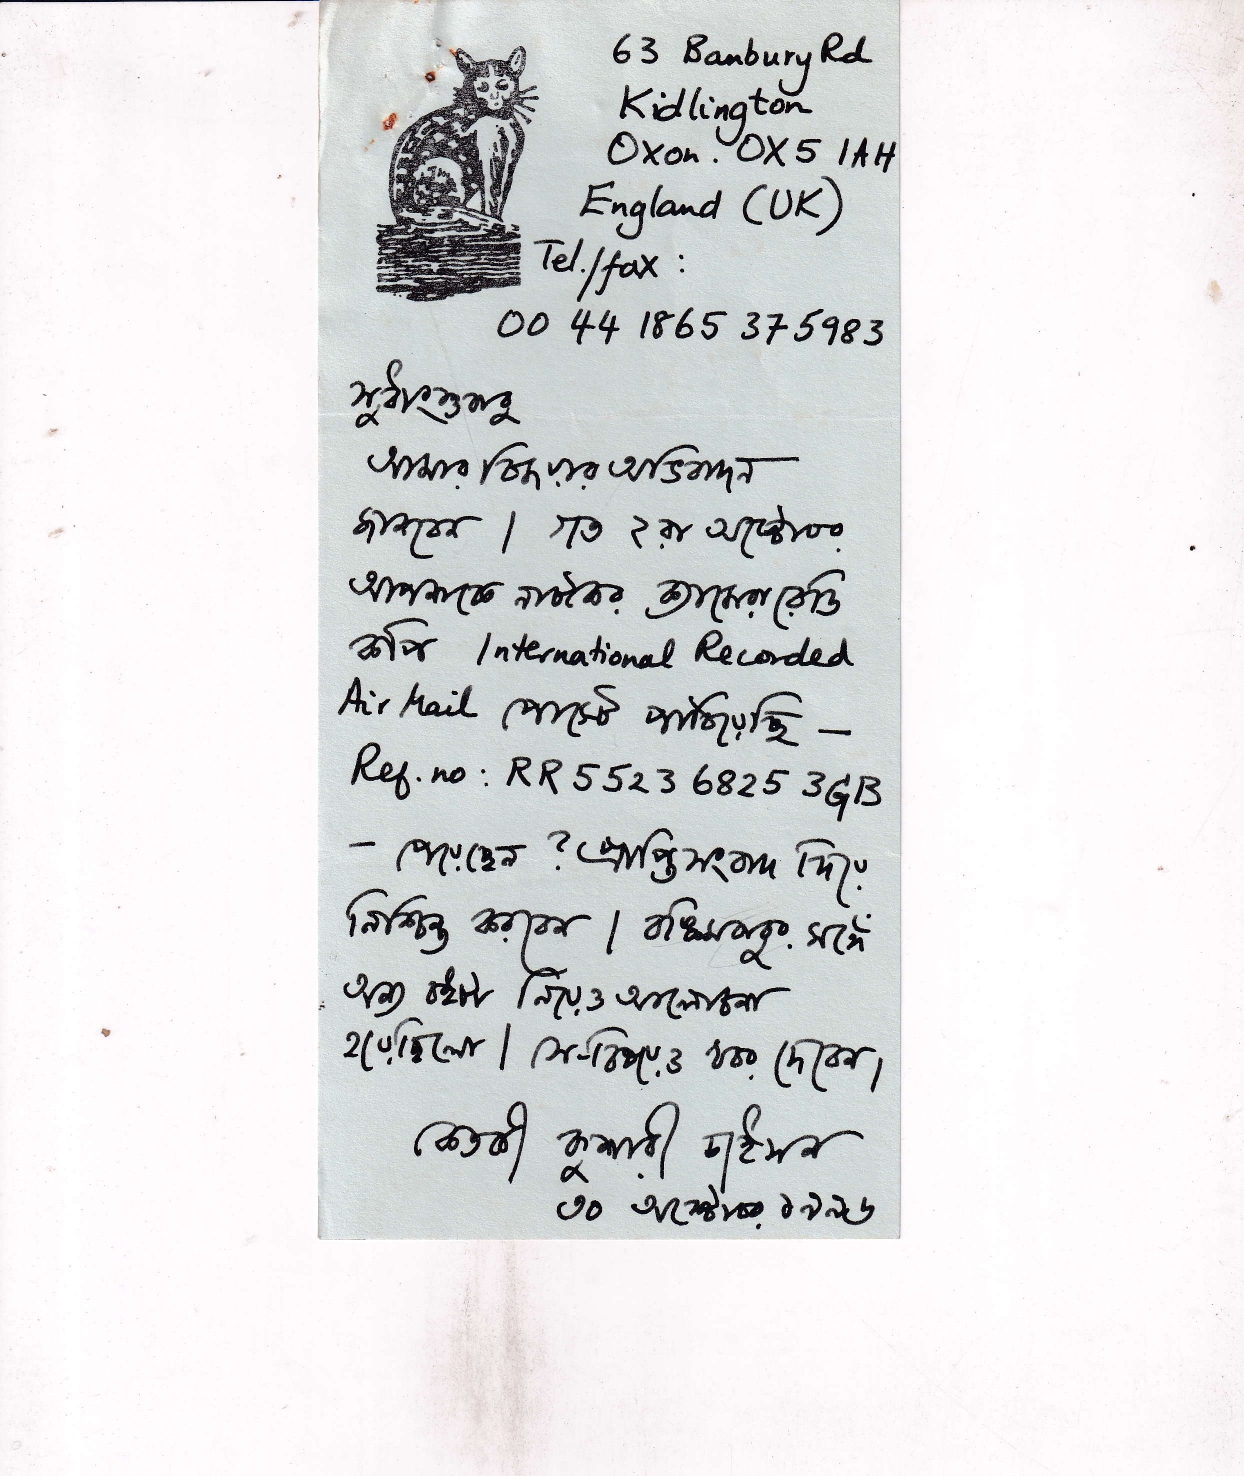 63 Banbury Rd
Kidlington
Oxon. OX5 1AH
England (UK)
Tel./fax :
00 44 1865 375983
সুধাংশুবাবু
আমার বিজয়ার অভিবাদন
জানবেন । গত ২রা অক্টোবর
আপনাকে নাটকের ক্যামেরা রেডি
কপি International Recorded
Air Mail পোস্টে পাঠিয়েছি —
Ref. no : RR 5523 6825 3GB
— পেয়েছেন ? প্রাপ্তিসংবাদ দিয়ে
নিশ্চিন্ত করবেন । বঙ্কিমবাবুর সঙ্গে
অন্য বইটা নিয়েও আলোচনা
হয়েছিলো । সে-বিষয়েও খবর দেবেন ।
কেতকী কুশারী ডাইসন
৩০ অক্টোবর ১৯৯৬